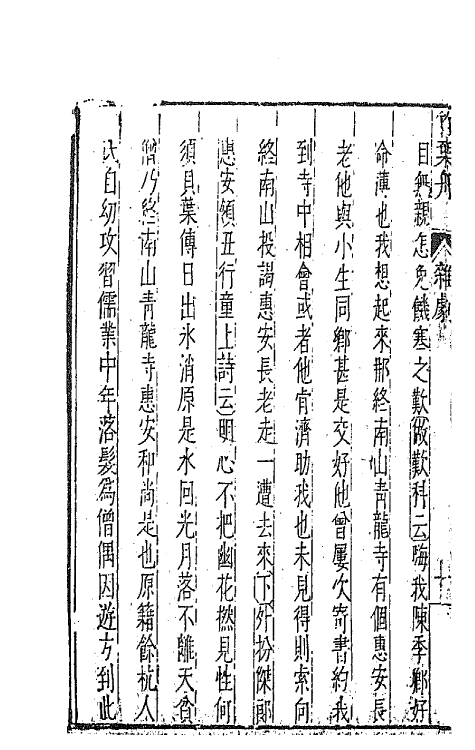 竹葉舟　雜劇
目無親怎免饑寒之歎做歎科云嗨我陳季卿好
命薄也我想起來那終南山青龍寺有個惠安長
老他與小生同鄉甚是交好他曾屢次寄書約我
到寺中相會或者他肯濟助我也未見得則索向
終南山投謁惠安長老走一遭去來下外扮傑郎
惠安領丑行童上詩云明心不把幽花撚見性何
須貝葉傳日出氷消原是水回光月落不離天貧
僧乃終南山青龍寺惠安和尚是也原籍餘杭人
氏自幼攻習儒業中年落髮為僧偶因遊方到此